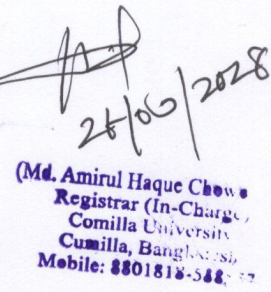 28/06/2028
(Md. Amirul Haque Chow
Registrar (In-Charge)
Comilla University
Cumilla,
Mobile: 8801818-588